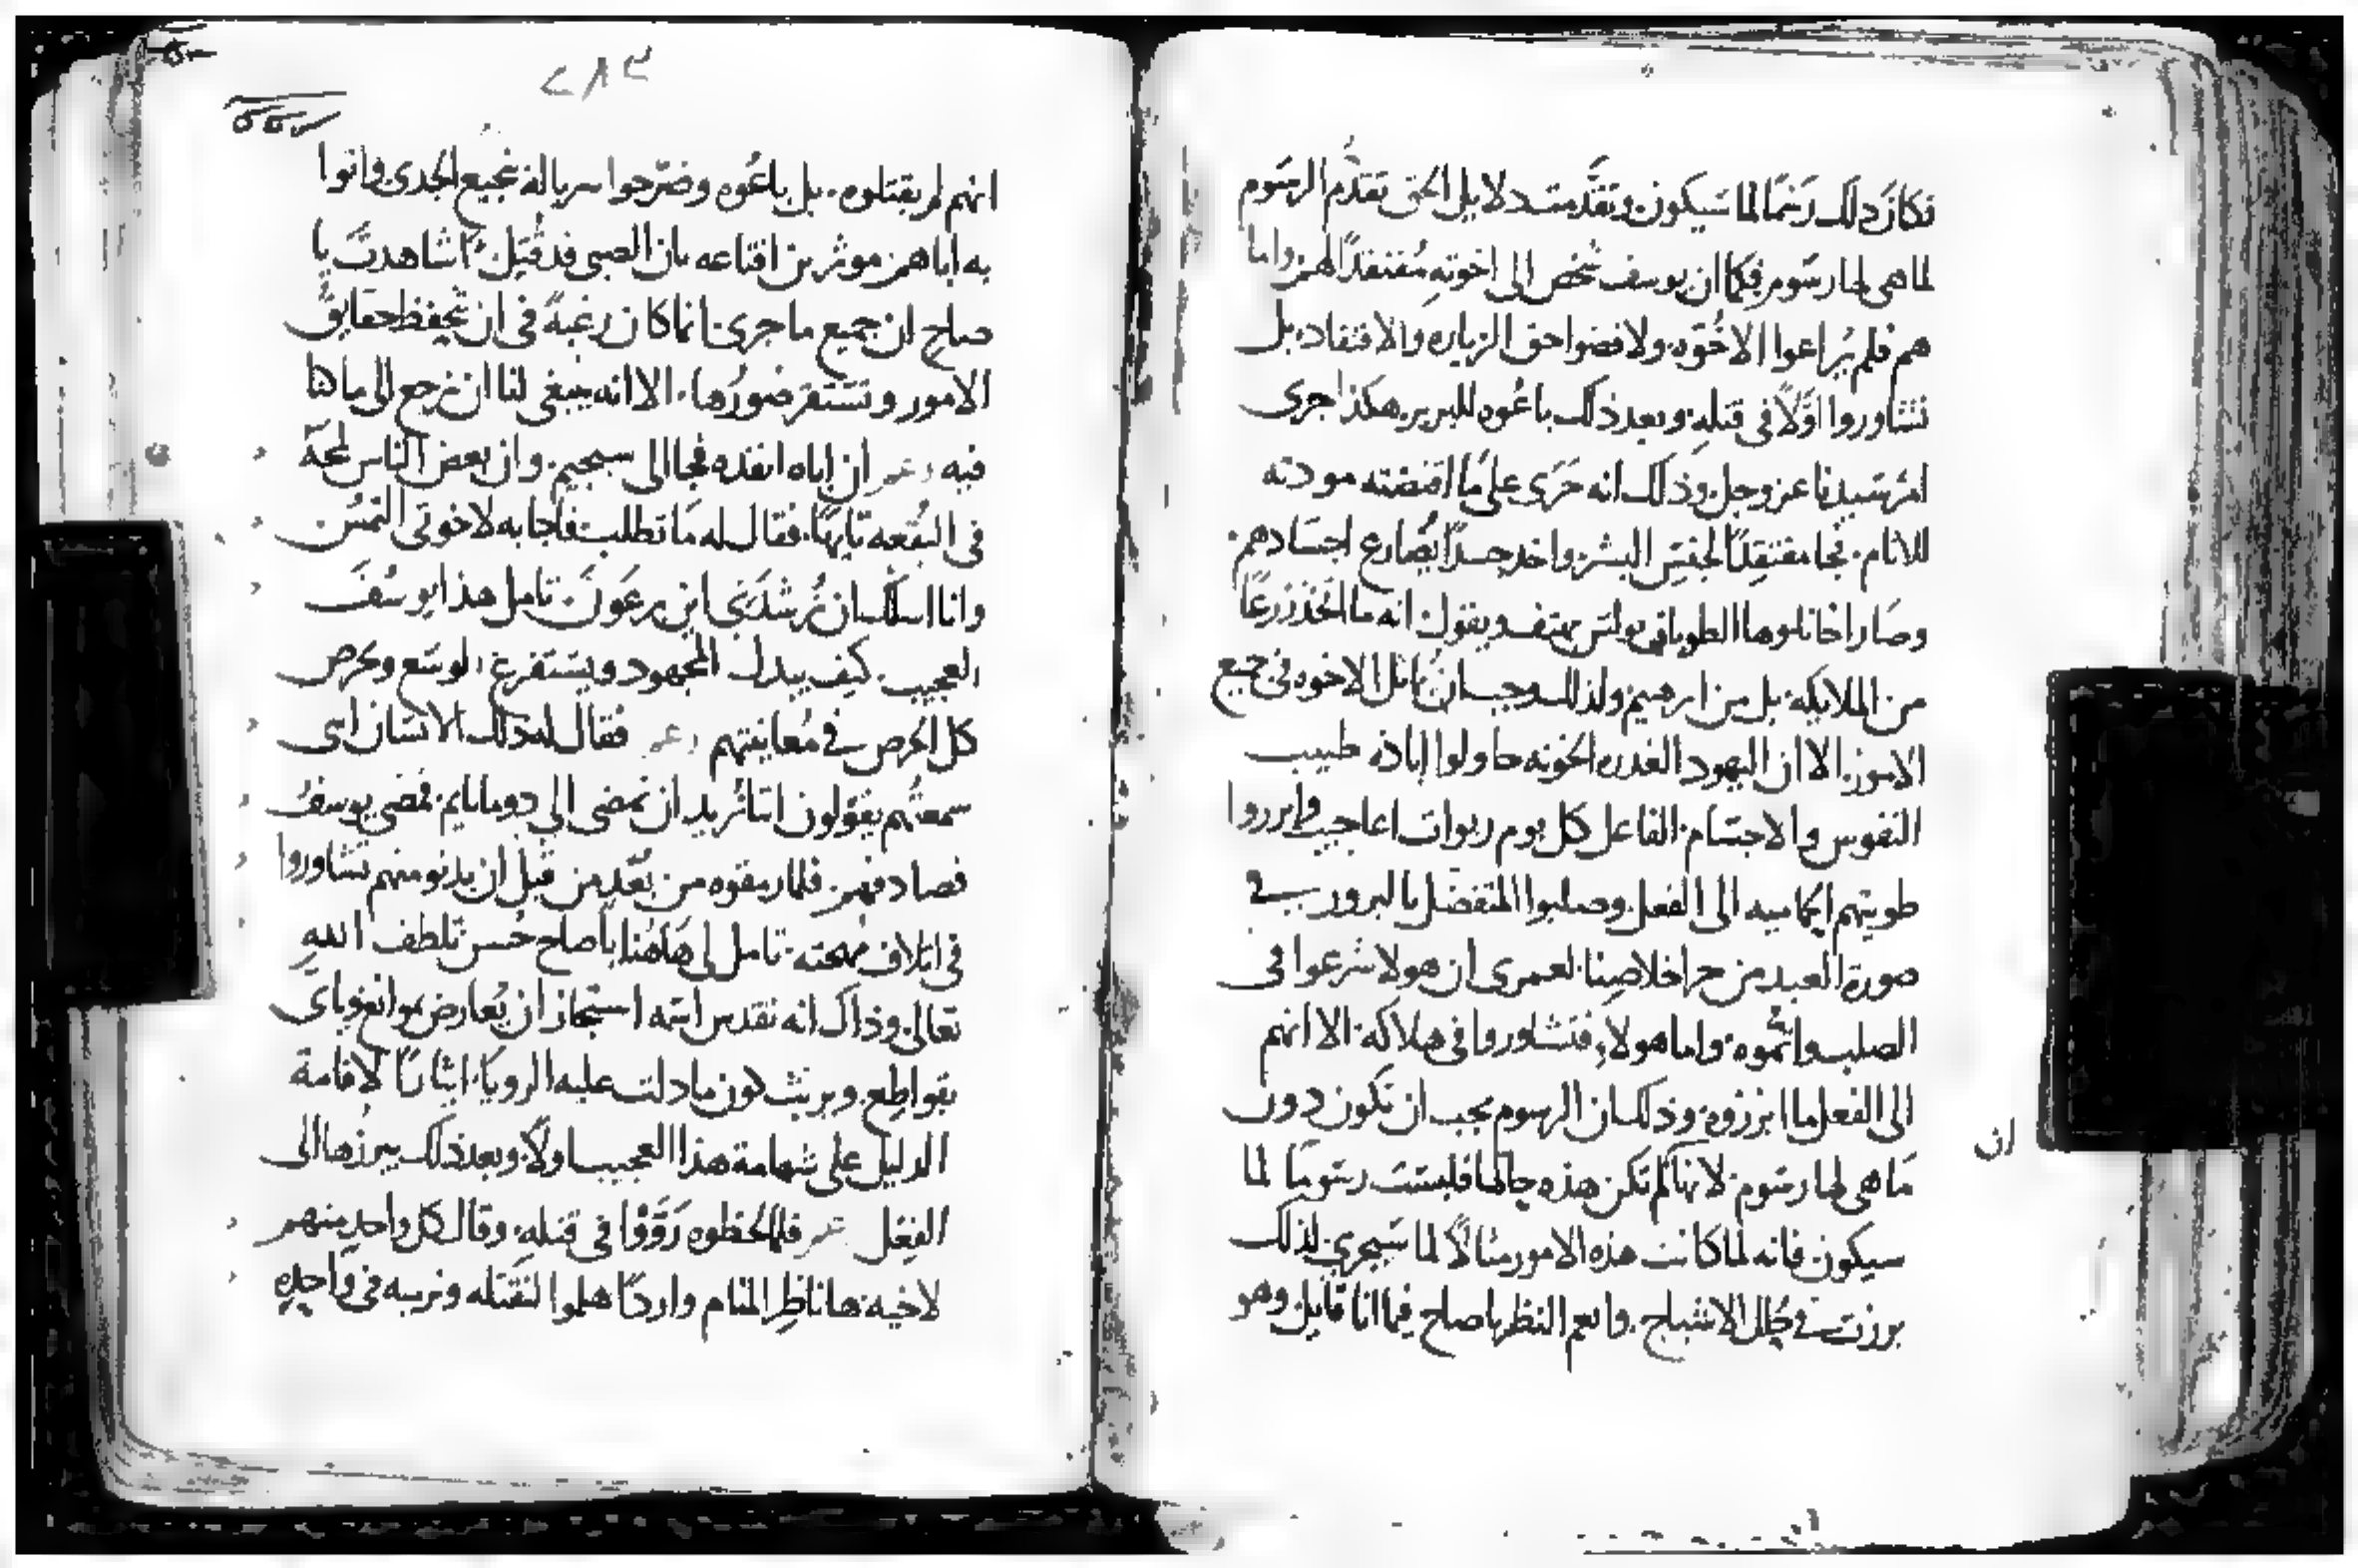 فكان ذلك رسمًا لما سيكون وتقدمت دلايل الحق تقدم الرسوم
لما هي لها رسوم فكما ان يوسف شخص الى اخوته مفتقدًا لهم واما
هم فلم يراعوا الاخوه ولا قضوا حق الزياره والافتقاد بل
تشاوروا اولًا في قتله وبعد ذلك باعوه للبربر هكذا جرى
امر سيدنا عز وجل وذلك انه جرى على ما اقتضته مودته
للانام فجا مفتقدًا لجنس البشر واخد جسدًا يضارع اجسادهم
وصار اخًا لنا وها الطوباني بولس يهتف ويقول انه ما اتخذ زرعًا
من الملايكه بل من ابرهيم ولذلك وجب ان يماثل الاخوه في جميع
الامور الا ان اليهود الغدره الخونه حاولوا اباذه طبيب
النفوس والاجسام الفاعل كل يوم ربوات اعاجيب وابرروا
طويتهم الى الفعل وصلبوا المتفضل بالبروز في
صورة العبد من جرا خلاصنا لعمري ان هولا شرعوا في
الصلب واتموه واما هولاء فتشاوروا في هلاكه الا انهم
الى الفعل ما ابرزوه وذلك ان الرسوم يجب ان تكون دون
ما هي لها رسوم لانها لم تكن هذه حالها فليست رسومًا لما
سيكون فانه لما كانت هذه الامور مثالًا لما سيجري لذلك
برزت في كلل الاشباح وانعم النظر يا صاح فيما انا قايل وهو
ان
٢٨٣
انهم لم يقتلوه بل باعوه وضرجوا سرباله بنجيع الجدى واتوا
به اباهم موثرين اقناعه بان الصبي قد قتل اشاهدت يا
صاح ان جميع ما جرى انما كان رغبة في ان تحفظ حقايق
الامور وتستقر صورها الا انه ينبغي لنا ان نرجع الى ما كنا
فيه ان اباه انفده فجا الى سجيم وان بعض الناس لمحه
في البقعه تايهًا فقال له ما تطلب فاجابه لاخوتي التمس
وانا اسلك ان ترشدني اين يرعون تامل هذا يوسف
العجيب كيف يبدل المجهود ويستفرغ الوسع ويحرص
كل الحرص في معاينتهم فقال له ذلك الانسان اى
سمعتهم يقولون اننا نريد ان نمضى الى دوثايم فمضى يوسف
فصادفهم فلما رمقوه من بعد من قبل ان يدنو منهم تشاوروا
في اتلاف مهجته تامل لي هاهنا يا صاح حسن تلطف الله
تعالى وذاك انه تقدس اسمه استجاز ان يعارض بموانع وباى
بقواطع ويريث كون ما دلت عليه الرويا ايثارًا لاقامة
الدليل على شهامة هذا العجيب اولًا وبعد ذلك يبرزها الى
الفعل فلما لحظوه رووا في قتله وقال كل واحد منهم
لاخيه هانا ناظر المنام واردًا هلموا لنقتله ونرميه في واحده